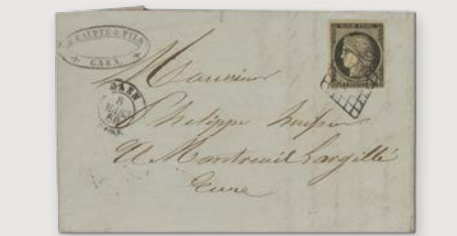 & FILS
CAEN
CAEN
8
Monsieur
Philippe
A Montreuil Largillé
Eure